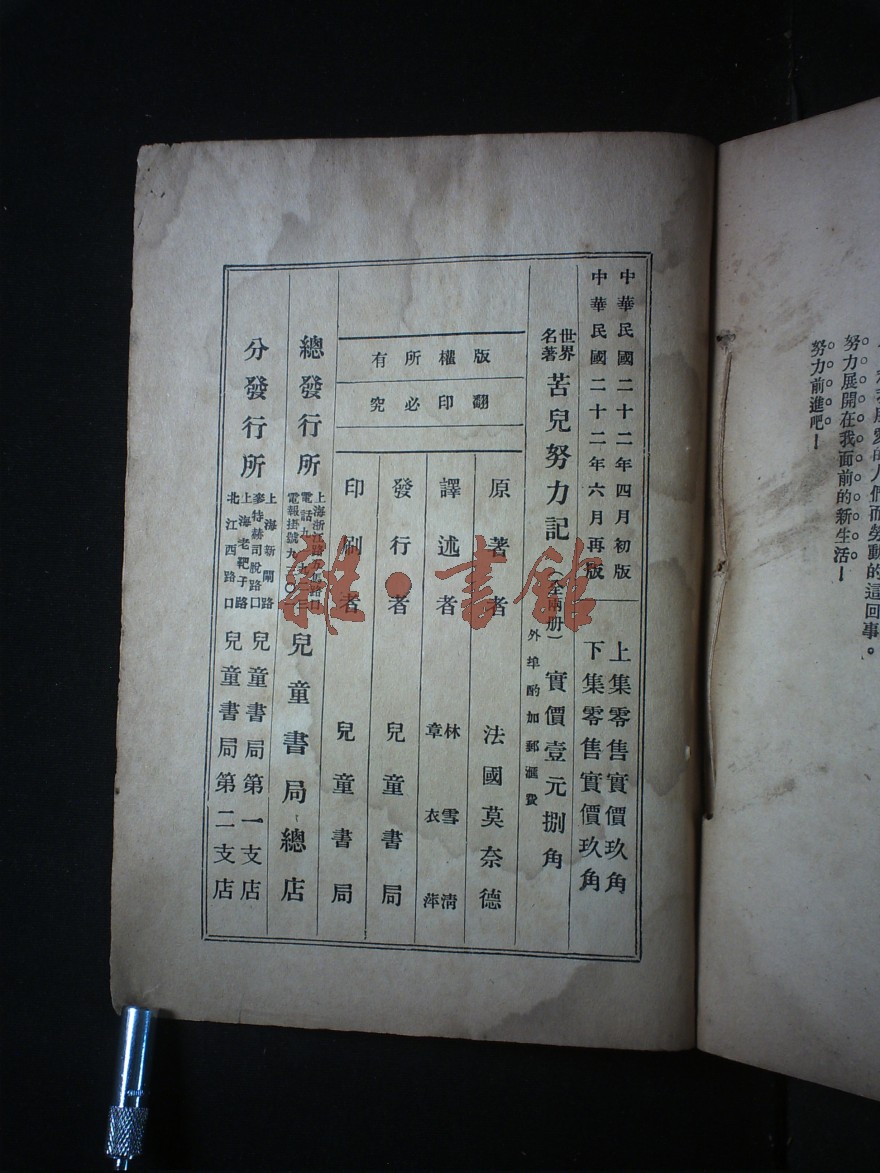 努力展開在我面前的新生活！
努力前進吧！
中華民國二十二年四月初版
中華民國二十二年六月再版
上集零售實價玖角
下集零售實價玖角
世界名著
苦兒努力記
（全兩册）
實價壹元捌角
外埠酌加郵滙費
版權所有
翻印必究
原著者 法國莫奈德
譯述者 林雪清 章衣萍
發行者 兒童書局
印刷者 兒童書局
總發行所
上海浙江路
電話九
電報掛號九
兒童書局總店
分發行所
上海新閘路
麥特赫司脫路口
兒童書局第一支店
上海老靶子路
北江西路口
兒童書局第二支店
雜·書館